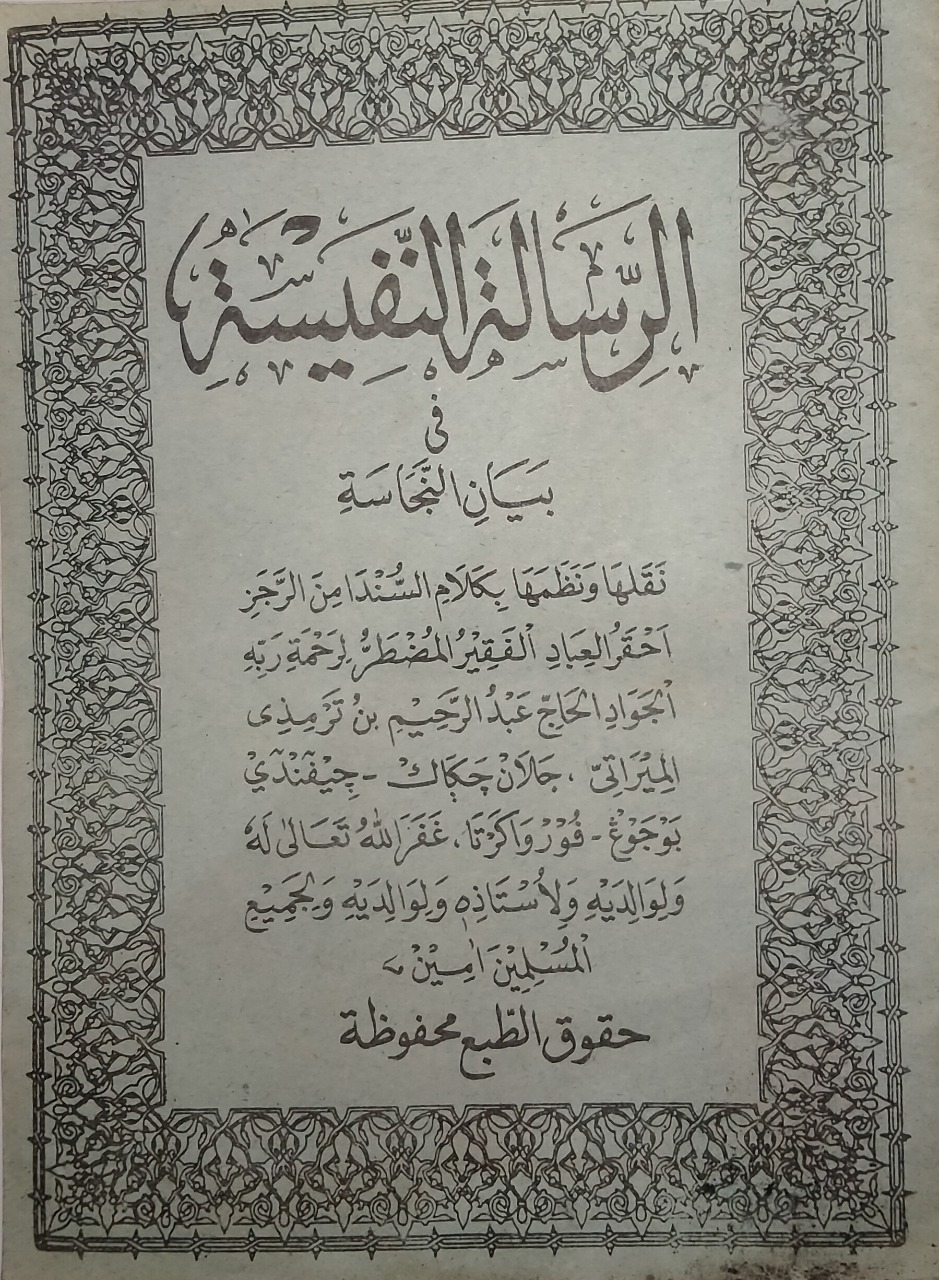 الرِّسَالَةُ النَّفِيْسَةُ
فى
بَيَانِ النَّجَاسَةِ
نَقَلَهَا وَنَظَمَهَا بِكَلَامِ السُّنْدَا مِنَ الرَّجَزِ
اَحْقَرُ العِبَادِ اَلْفَقِيْرُ الْمُضْطَرُّ لِرَحْمَةِ رَبِّهِ
اَلْجَوَادِ الحَاجّ عَبْدُ الرَّحِيْمِ بنُ تَرْمِذِى
المِيْرَاتِىّ ، جَلَانْ چَݢَاكْ - چِيْفَنْدَيْ
بَوْجَوْڠْ - فُوْرْوَاكَرْتَا، غَفَرَ اللّٰهُ تَعَالىٰ لَهُ
وَلِوَالِدَيْهِ وَلِاُسْتَاذِهِ وَلِوَالِدَيْهِ وَلِجَمِيْعِ
اْلمُسْلِمِيْنَ اٰمِيْنْ
حقوق الطّبع محفوظة